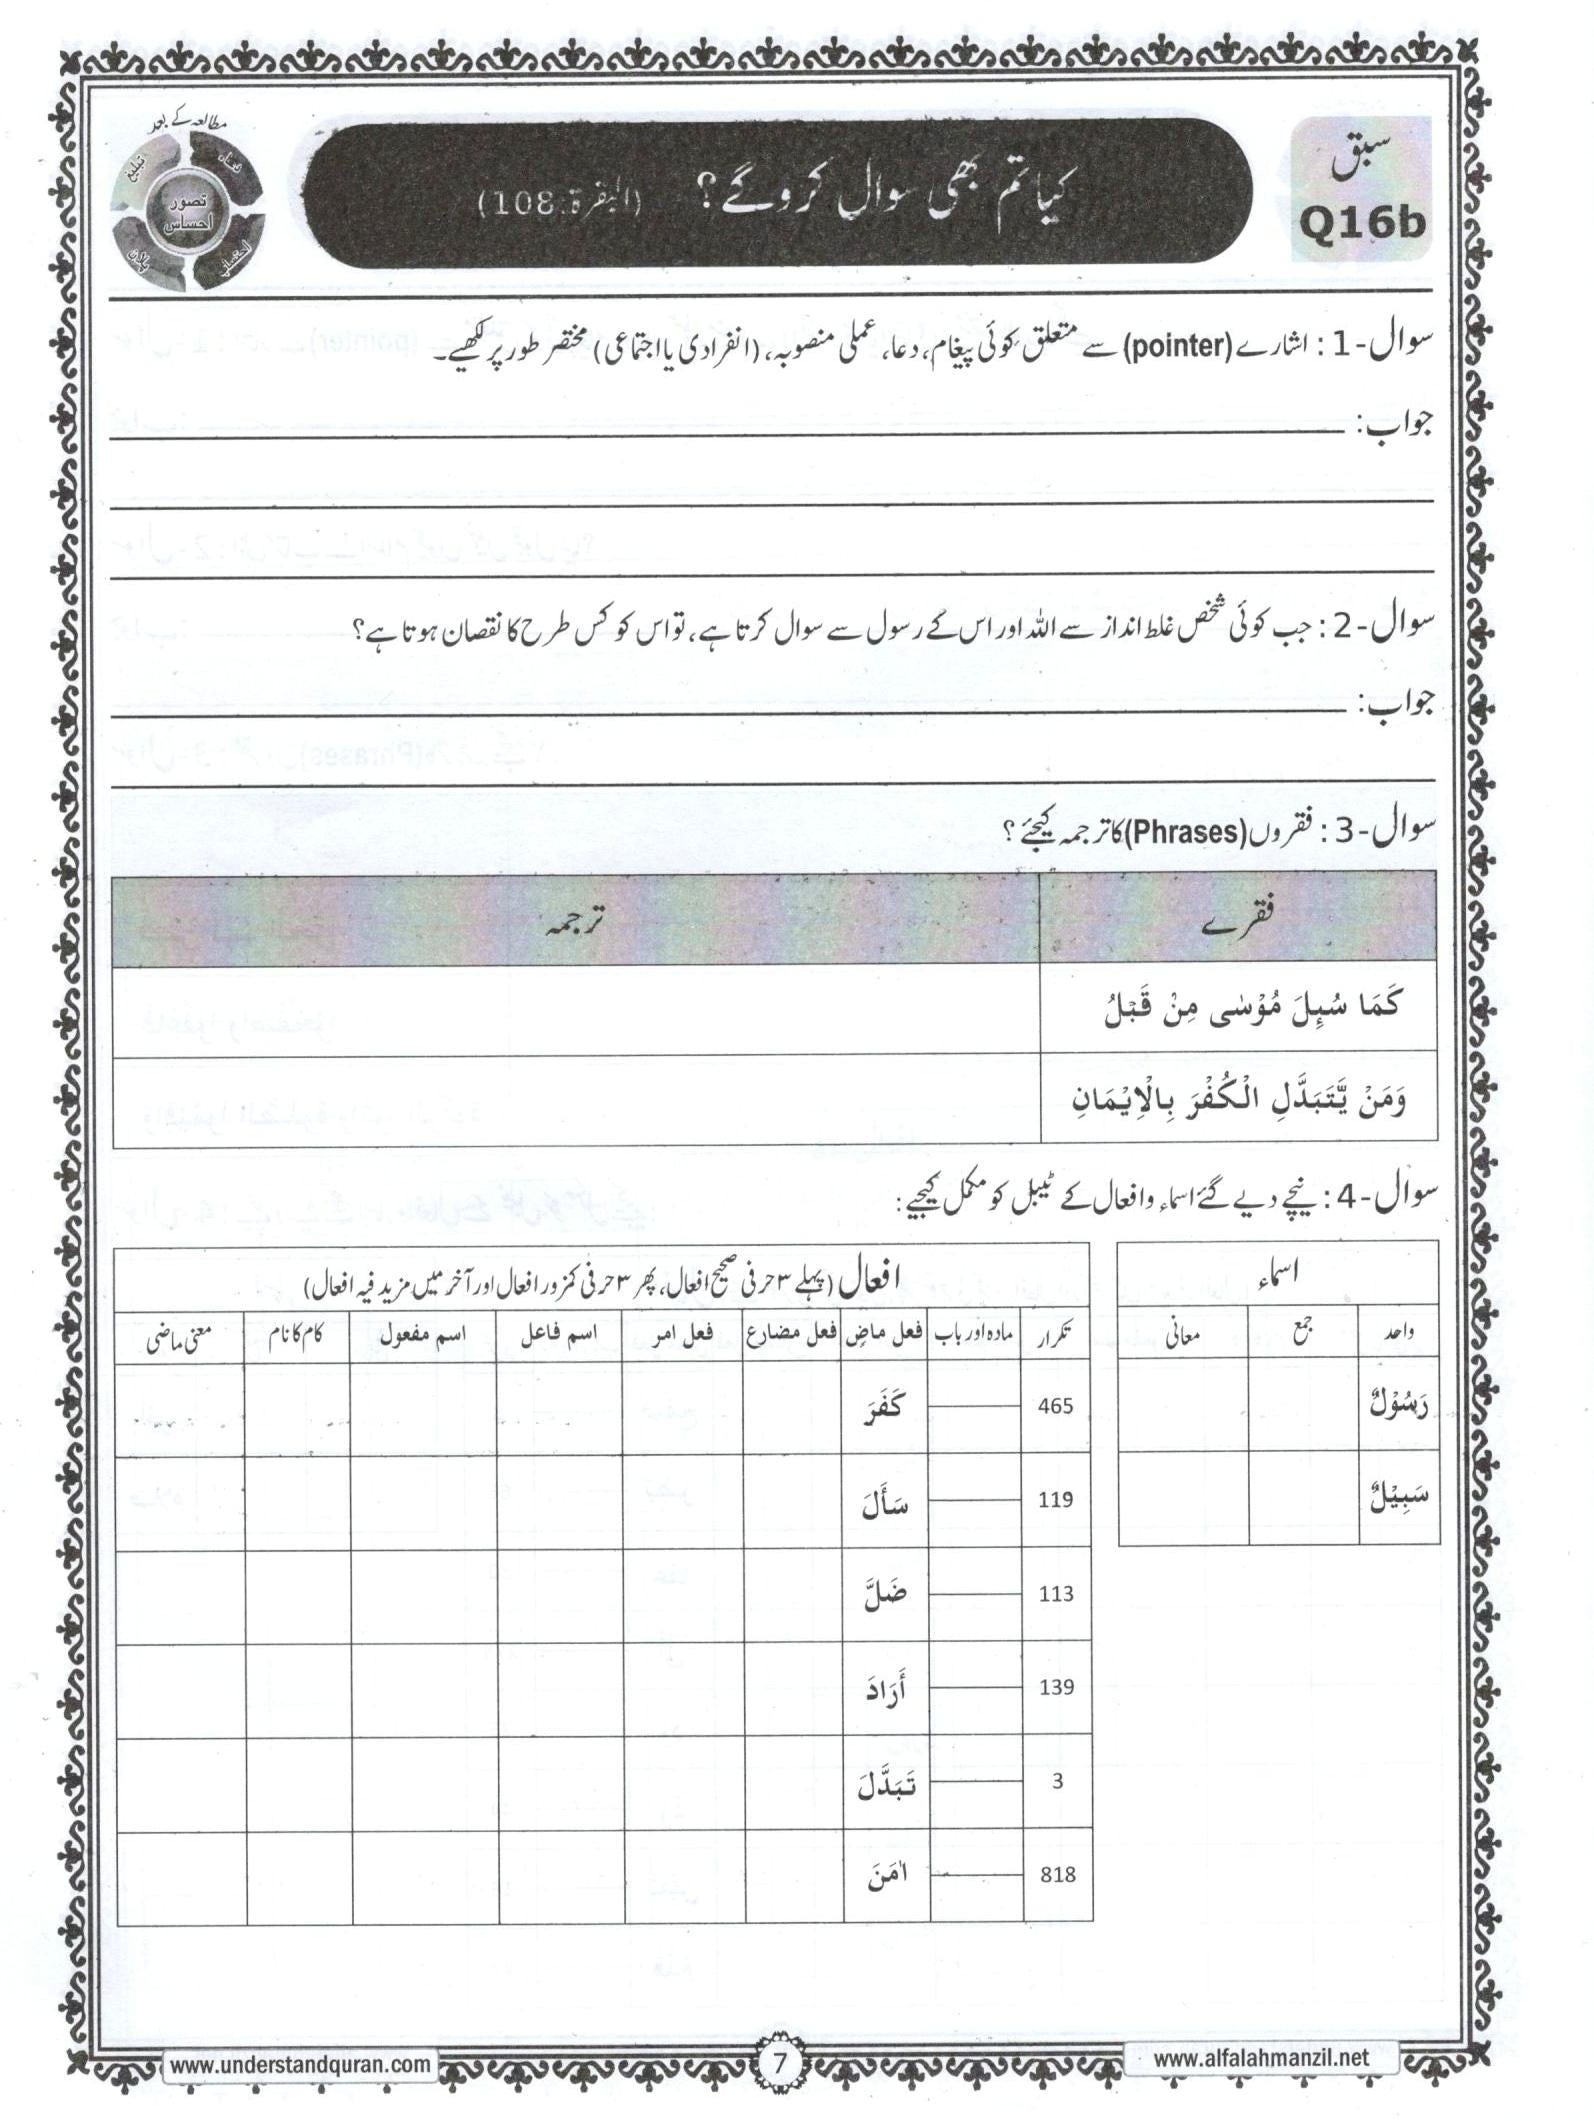 مطالعہ کے بعد
دعاء
تبلیغ
تصور
احساس
احتساب
پلان
سبق
Q16b
کیا تم بھی سوال کرو گے؟ (البقرة:108)
سوال-1: اشارے (pointer) سے متعلق کوئی پیغام، دعا، عملی منصوبہ، (انفرادی یا اجتماعی) مختصر طور پر لکھیے۔
جواب:
سوال-2: جب کوئی شخص غلط انداز سے اللہ اور اس کے رسول سے سوال کرتا ہے، تو اس کو کس طرح کا نقصان ہوتا ہے؟
جواب:
سوال-3: فقروں (Phrases) کا ترجمہ کیجئے؟
فقرے ترجمہ
كَمَا سُئِلَ مُوْسٰى مِنْ قَبْلُ
وَمَنْ يَّتَبَدَّلِ الْكُفْرَ بِالْاِيْمَانِ
سوال-4: نیچے دیے گئے اسماء و افعال کے ٹیبل کو مکمل کیجیے:
اسماء
واحد جمع معانی
رَسُوْلٌ
سَبِيْلٌ
افعال (پہلے ۳ حرفی صحیح افعال، پھر ۳ حرفی کمزور افعال اور آخر میں مزید فیہ افعال)
تکرار مادہ اور باب فعل ماضٍ فعل مضارع فعل امر اسم فاعل اسم مفعول کام کا نام معنی ماضی
465 كَفَرَ
119 سَأَلَ
113 ضَلَّ
139 أَرَادَ
3 تَبَدَّلَ
818 اٰمَنَ
www.understandquran.com 7 www.alfalahmanzil.net